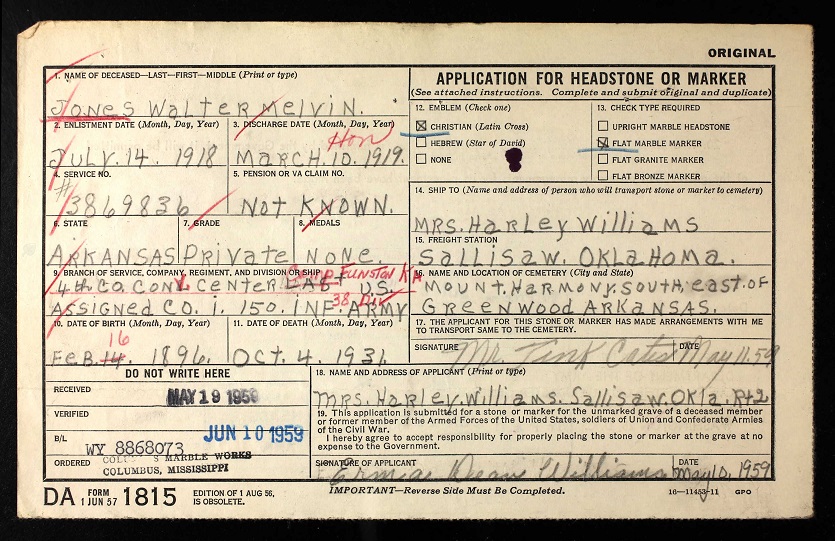 ORIGINAL
1. NAME OF DECEASED—LAST—FIRST—MIDDLE (Print or type)
Jones Walter Melvin.
2. ENLISTMENT DATE (Month, Day, Year)
July. 14. 1918
3. DISCHARGE DATE (Month, Day, Year)
Hon
March. 10. 1919.
4. SERVICE NO.
# 3869836
5. PENSION OR VA CLAIM NO.
Not Known.
6. STATE
Arkansas
7. GRADE
Private
8. MEDALS
None.
9. BRANCH OF SERVICE, COMPANY, REGIMENT, AND DIVISION OR SHIP
Camp Funston Ka
4th. Co. Conv. Center U.S.
38 Div
Assigned Co. i. 150. INF. Army
10. DATE OF BIRTH (Month, Day, Year)
16
Feb. 14. 1896.
11. DATE OF DEATH (Month, Day, Year)
Oct. 4. 1931.
APPLICATION FOR HEADSTONE OR MARKER
(See attached instructions. Complete and submit original and duplicate)
12. EMBLEM (Check one)
CHRISTIAN (Latin Cross)
HEBREW (Star of David)
NONE
13. CHECK TYPE REQUIRED
UPRIGHT MARBLE HEADSTONE
FLAT MARBLE MARKER
FLAT GRANITE MARKER
FLAT BRONZE MARKER
14. SHIP TO (Name and address of person who will transport stone or marker to cemetery)
Mrs. Harley Williams
15. FREIGHT STATION
Sallisaw. Oklahoma.
16. NAME AND LOCATION OF CEMETERY (City and State)
Mount. Harmony. South, east. of
Greenwood Arkansas.
17. THE APPLICANT FOR THIS STONE OR MARKER HAS MADE ARRANGEMENTS WITH ME
TO TRANSPORT SAME TO THE CEMETERY.
SIGNATURE
Mr. Tink Cates
DATE
May 11. 59
DO NOT WRITE HERE
RECEIVED
MAY 19 1959
VERIFIED
JUN 10 1959
B/L
WY 8868073
ORDERED
MARBLE WORKS
COLUMBUS, MISSISSIPPI
18. NAME AND ADDRESS OF APPLICANT (Print or type)
Mrs. Harley. Williams. Sallisaw. Okla. Rt2
19. This application is submitted for a stone or marker for the unmarked grave of a deceased member
or former member of the Armed Forces of the United States, soldiers of Union and Confederate Armies
of the Civil War.
I hereby agree to accept responsibility for properly placing the stone or marker at the grave at no
expense to the Government.
SIGNATURE OF APPLICANT
Williams
DATE
May 10, 1959
DA FORM 1 JUN 57 1815
EDITION OF 1 AUG 56,
IS OBSOLETE.
IMPORTANT—Reverse Side Must Be Completed.
16—11453-11 GPO